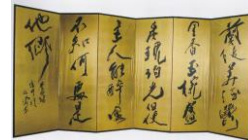 蘭陵美酒鬱
金香玉椀盛
来琥珀光但使
主人能醉客
不知何處是
他鄉